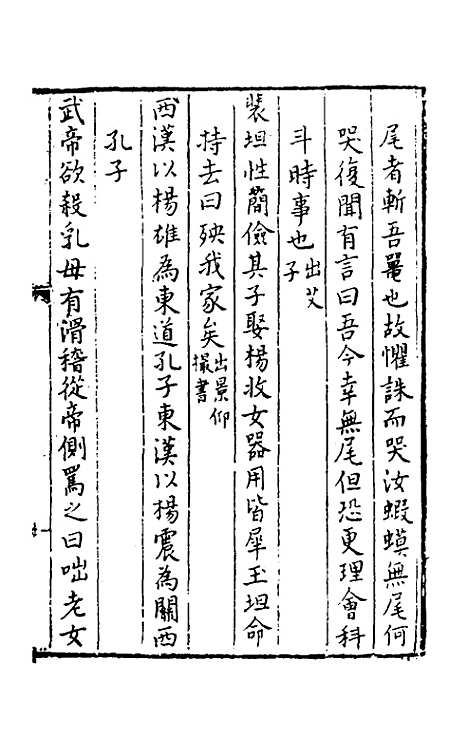 尾者斬吾鼉也故懼誅而哭汝蝦蟆無尾何
哭復聞有言曰吾今幸無尾但恐更理會科
斗時事也出艾子
裴坦性簡儉其子娶楊收女器用皆犀玉坦命
持去曰殃我家矣出景仰撮書
西漢以楊雄為東道孔子東漢以楊震為關西
孔子
武帝欲殺乳母有滑稽從帝側罵之曰咄老女